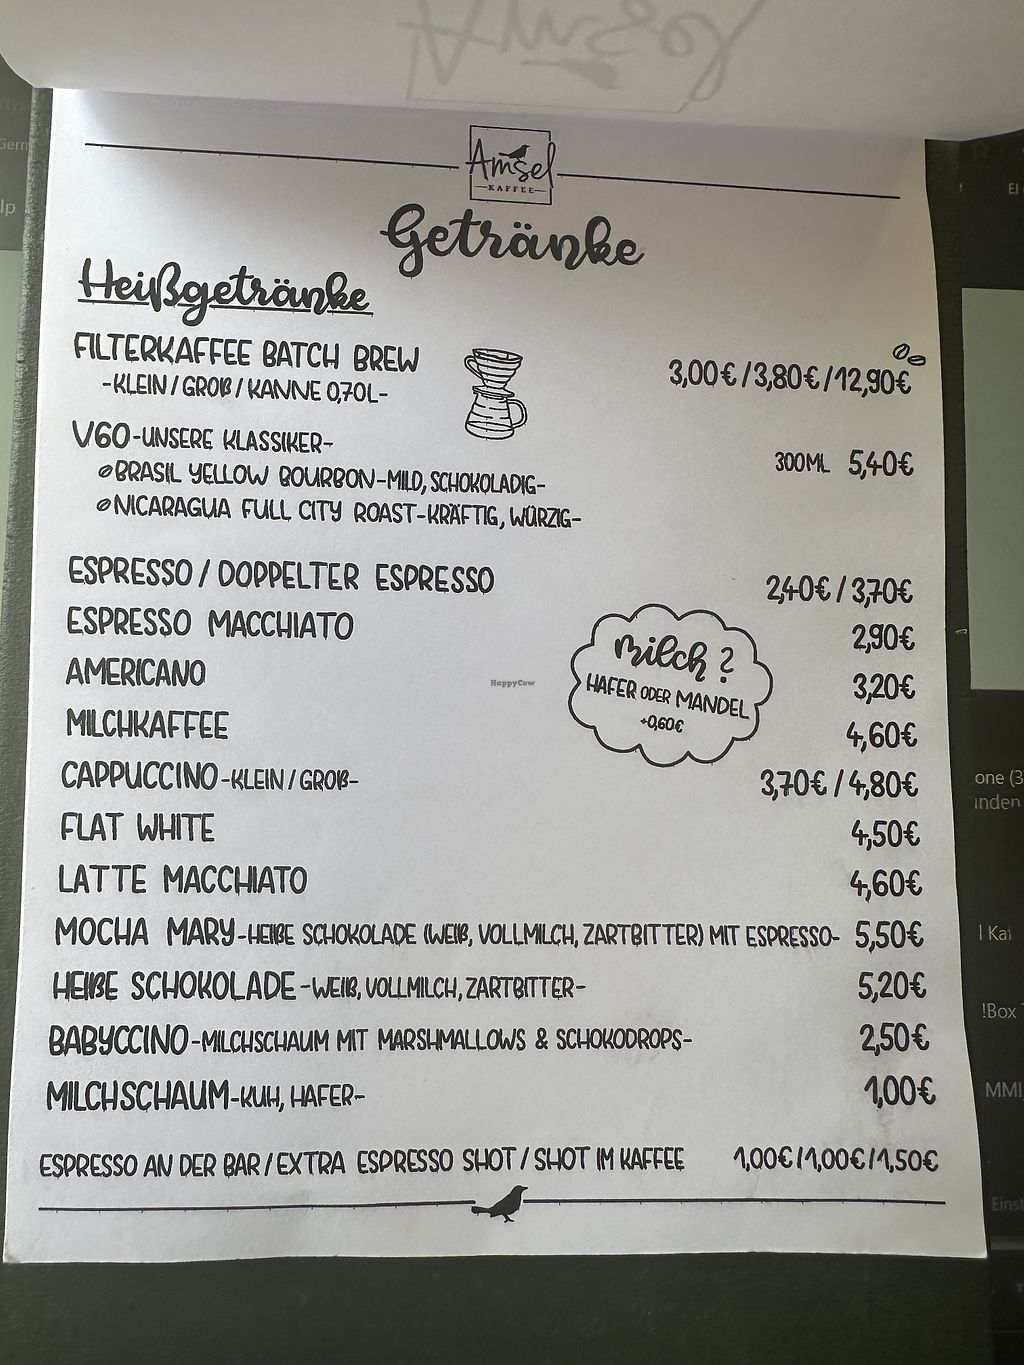 Amsel
KAFFEE
Getränke
Heißgetränke
FILTERKAFFEE BATCH BREW
-KLEIN / GROß / KANNE 0,70L-
3,00€ / 3,80€ / 12,90€
V60-UNSERE KLASSIKER-
BRASIL YELLOW BOURBON-MILD, SCHOKOLADIG-
300ML 5,40€
NICARAGUA FULL CITY ROAST-KRÄFTIG, WÜRZIG-
ESPRESSO / DOPPELTER ESPRESSO 2,40€ / 3,70€
ESPRESSO MACCHIATO 2,90€
AMERICANO 3,20€
MILCHKAFFEE 4,60€
Milch?
HAFER ODER MANDEL
+0,60€
HappyCow
CAPPUCCINO-KLEIN / GROß- 3,70€ / 4,80€
FLAT WHITE 4,50€
LATTE MACCHIATO 4,60€
MOCHA MARY-HEIßE SCHOKOLADE (WEIß, VOLLMILCH, ZARTBITTER) MIT ESPRESSO- 5,50€
HEIßE SCHOKOLADE-WEIß, VOLLMILCH, ZARTBITTER- 5,20€
BABYCCINO-MILCHSCHAUM MIT MARSHMALLOWS & SCHOKODROPS- 2,50€
MILCHSCHAUM-KUH, HAFER- 1,00€
ESPRESSO AN DER BAR / EXTRA ESPRESSO SHOT / SHOT IM KAFFEE 1,00€/1,00€/1,50€
one (3
unden
l Kai
!Box
MMI
Einst